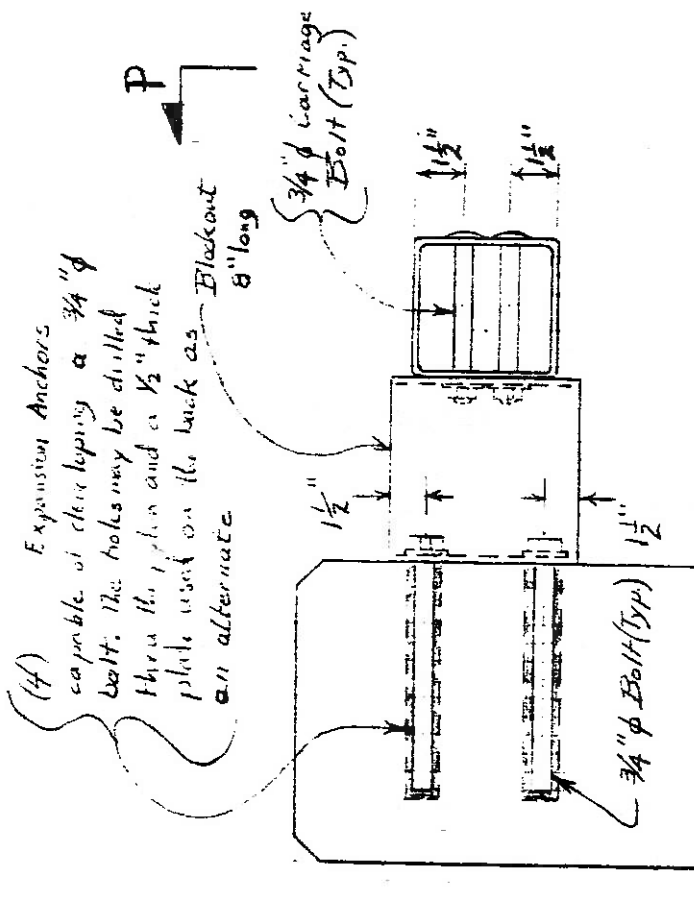 (4) Expansion Anchors
capable of developing a 3/4" ϕ
bolt. The holes may be drilled
thru the and a 1/2" thick
plate used on the back as
an alternate
Blockout
8" long
P
3/4" ϕ Carriage
Bolt (Typ.)
1 1/2"
1 1/2"
1 1/2"
1 1/2"
3/4" ϕ Bolt (Typ.)